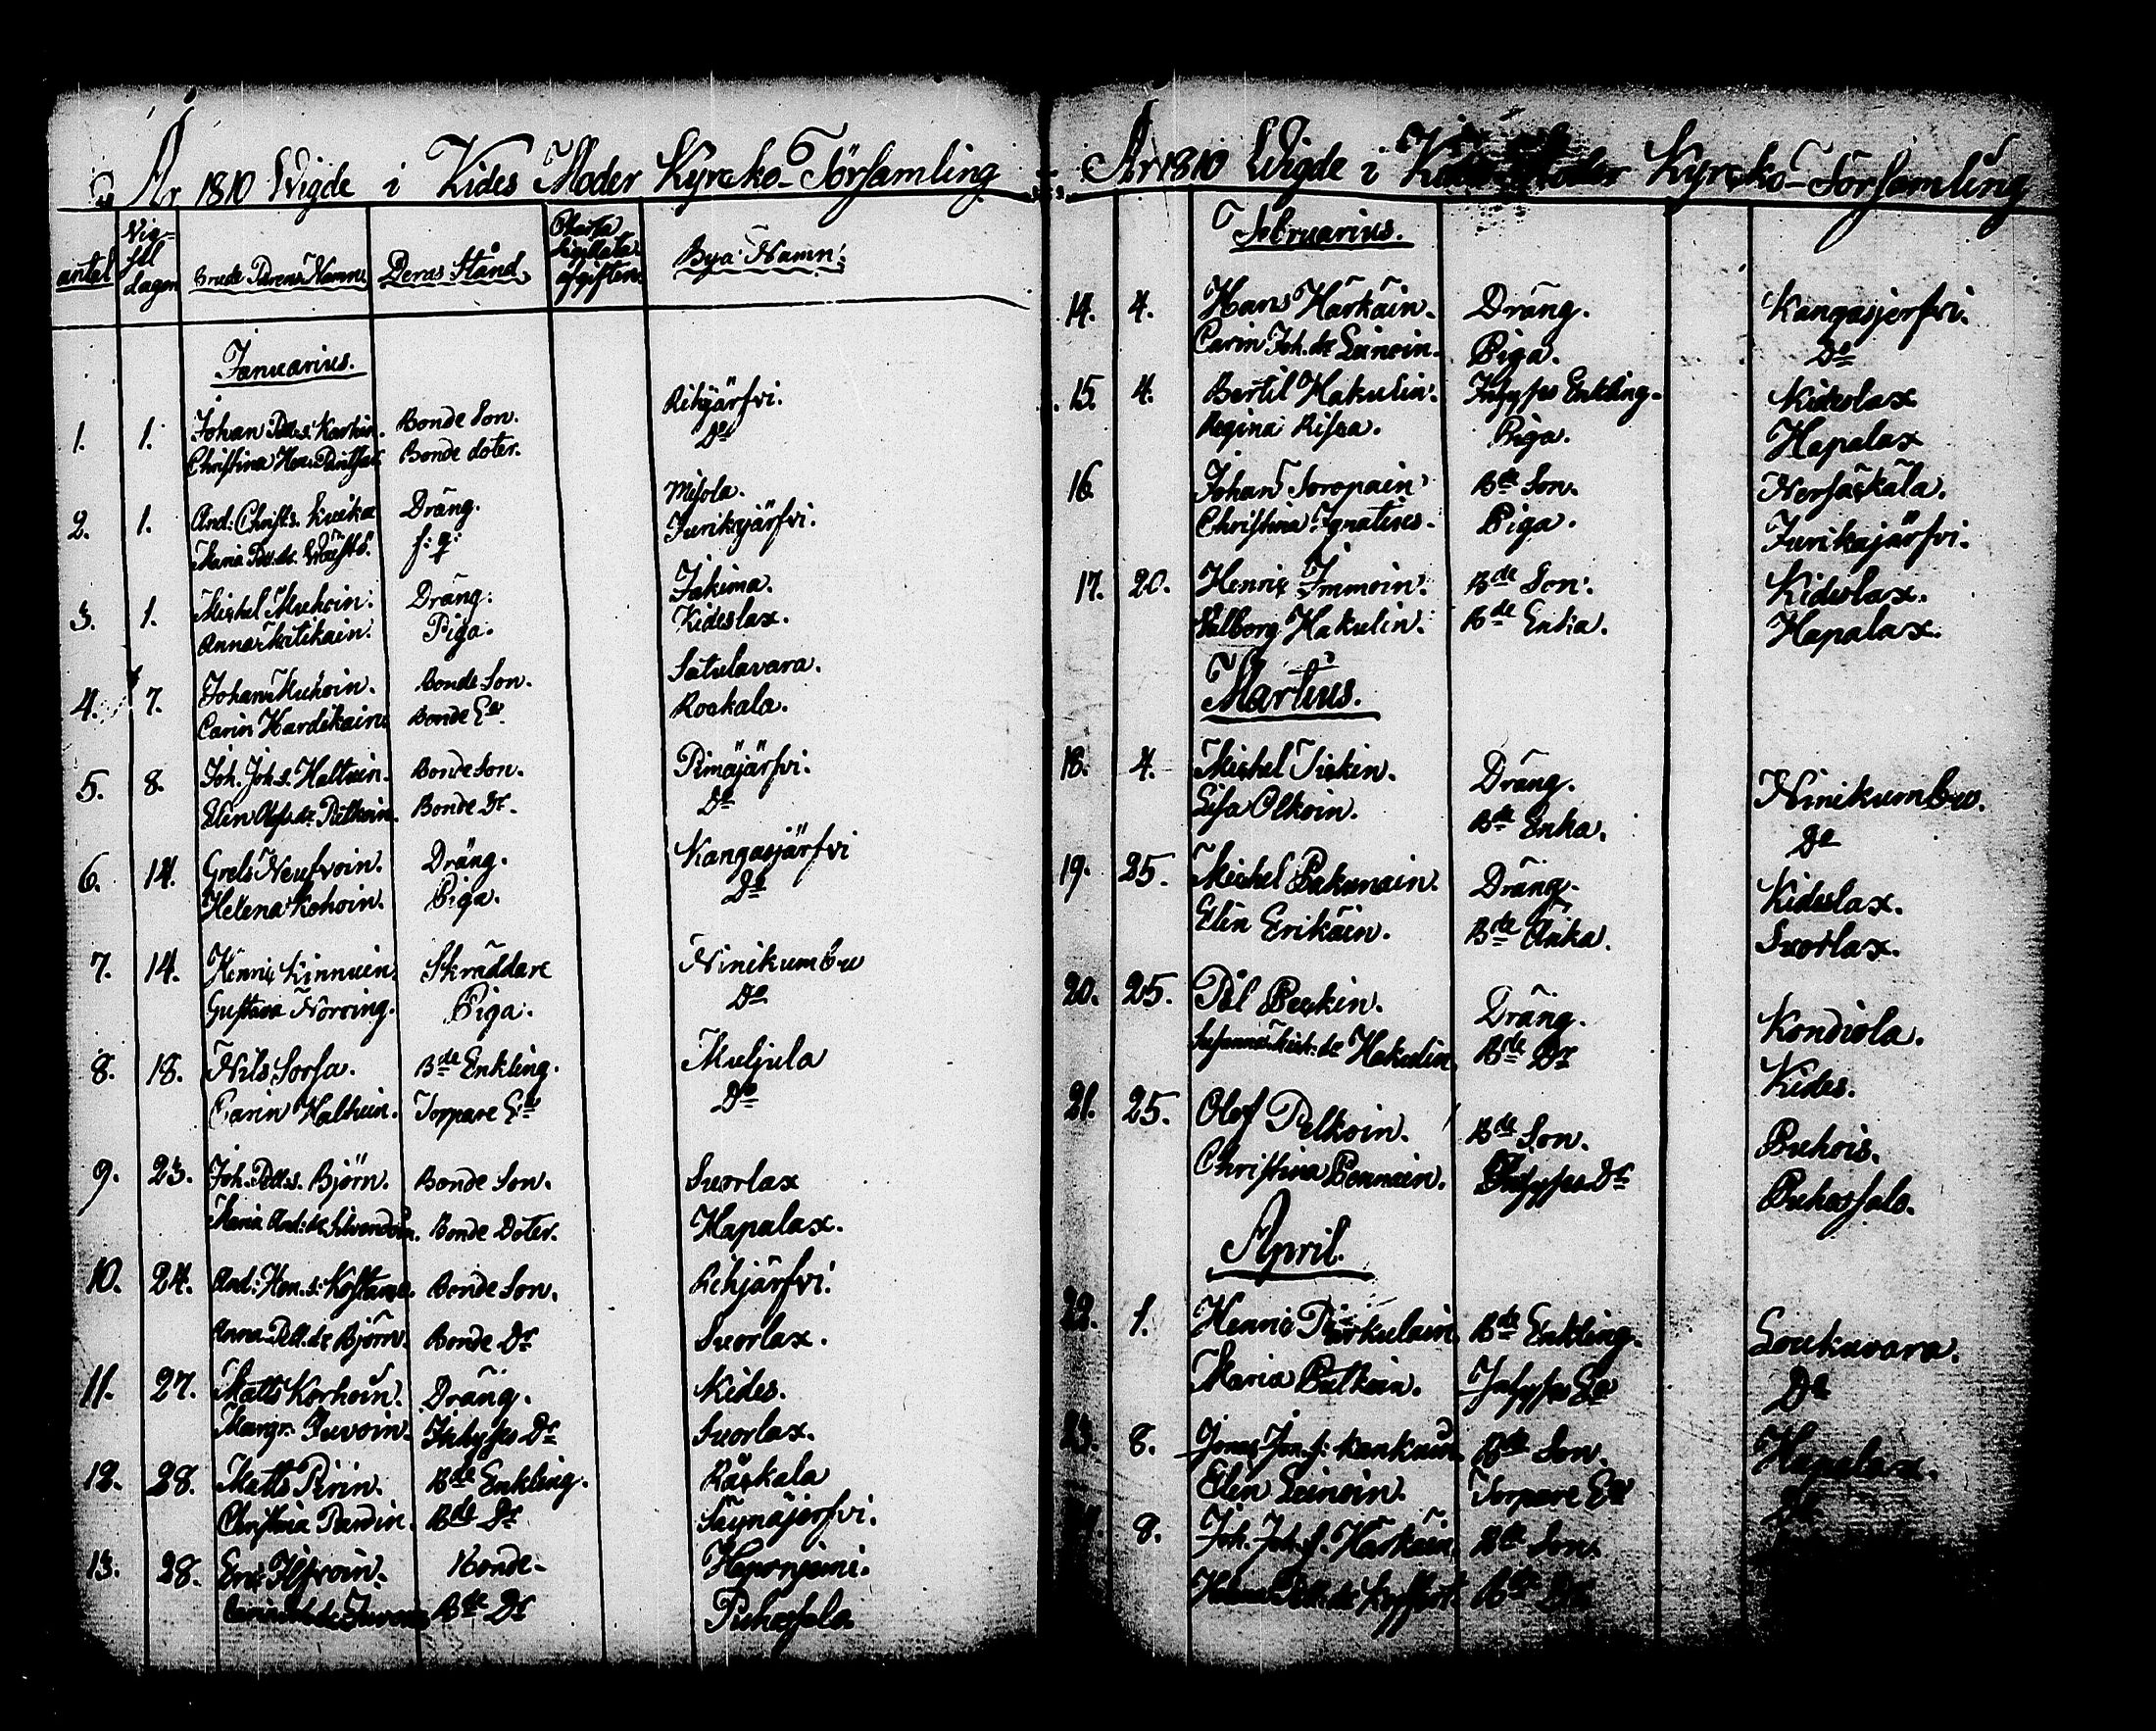 År 1810 Wigde i Kides Moder Kyrcko-Församling
antal Vigsel dagen Brude Parens Namn Deras Stånd Charta Sigillata afgiften Bya Namn:
Januarius.
1. 1. Johan Pett.s. Karhin. Bonde Son. Rihijärfvi.
Christina Hen: Bonde doter. Do
2. 1. And: Christ.s. Kuika Dräng. Misola.
Maria Pet.dr. f: q: Jurikajärfvi.
3. 1. Michel Muhoin: Dräng: Jakima.
Anna Matikain: Piga: Kideslax.
4. 7. Johan Muhoin. Bonde Son. Satulavara.
Carin Hardikain: Bonde Ea. Roskala.
5. 8. Joh. Joh.s. Haltuin. Bonde Son. Pimäjärfvi.
Elin Olofs dr Pelkoin. Bonde Dr. Do
6. 14. Grels Neufvoin. Dräng. Kangasjärfvi
Helena Kohoin. Piga. Do
7. 14. Henric Kinnuin. Skräddare Ninikumbu
Gustava Norring. Piga. Do
8. 18. Nils Sorsa. Bde Enkling. Muljula
Carin Haltuin. Torpare Ea Do
9. 23. Joh. Pett.s. Björn. Bonde Son. Suorlax
Maria And: dr Silvendoin. Bonde Doter. Hapalax.
10. 24. And: Hen.s: Kostamo. Bonde Son. Rihjärfvi.
Anna Pett.dr Björn. Bonde Dr Suorlax.
11. 27. Matts Korhoin. Dräng. Kides.
Margr. Juvoin. Inhyses Dr Suorlax.
12. 28. Matts Pirin. Bde Enkling. Räskala
Christina Pardin. Bde Dr Säynäjerfvi.
13. 28. Eric Ilfvoin. Bonde. Haponjemi.
Bde Dr Puhossalo.
År 1810 Wigde i Kides Moder Kyrcko-Församling
Februarius.
14. 4. Hans Härkäin. Dräng. Kangasjerfvi.
Carin Joh. dr Leinoin. Piga. Do
15. 4. Bertil Hakulin. Inhyses Enkling. Kideslax
Regina Risea. Piga. Hapalax
16. Johan Soropain Bde Son. Nersäkkälä.
Christina Ignatius. Piga. Jurikajärfvi.
17. 20. Henric Immoin. Bde Son. Kideslax.
Valborg Hakulin. Bde Enka. Hapalax.
Martius.
18. 4. Michel Tirkin. Dräng. Ninikumbu.
Lisa Olkoin. Bde Enka. Do
19. 25. Michel Pakarain. Dräng. Kideslax.
Elin Erikäin. Bde Änka. Suorlax.
20. 25. Pål Peskin. Dräng. Kondiola.
Susanna Mich: dr Hakulin Bde Dr Kides.
21. 25. Olof Pelkoin. Bde Son. Puhois.
Christina Pennain. Inhyses Dr Puhossalo.
April.
22. 1. Henric Bde Enkling. Loukuvara.
Maria Inhyses Ea Do
23. 8. Jonas Jon.s: Kankuin Bde Son. Hapalax.
Elin Leinoin. Torpare Ea Do
8. Joh. Joh.s. Härkäin. Bde Son.
Pett: dr Bde Dr